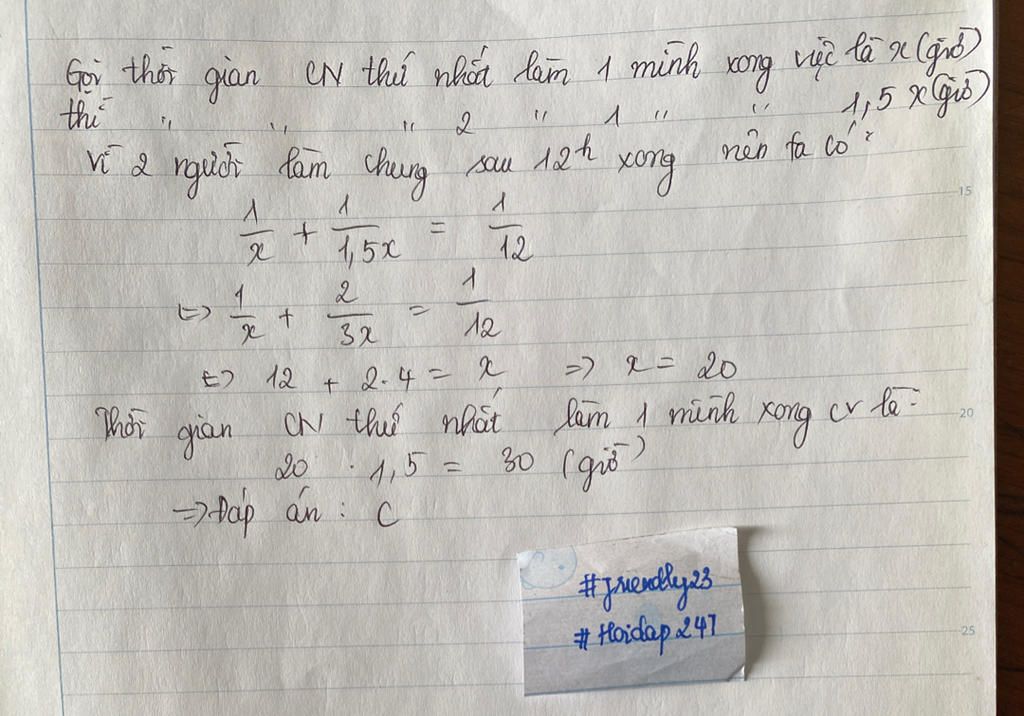 Gọi thời gian CN thứ nhất làm 1 mình xong việc là x (giờ)
thì " " " 2 " 1 " " 1,5 x (giờ)
Vì 2 người làm chung sau 12h xong nên ta có:
1/x + 1/1,5x = 1/12
<=> 1/x + 2/3x = 1/12
<=> 12 + 2.4 = x => x = 20
Thời gian CN thứ nhất làm 1 mình xong cv là:
20 . 1,5 = 30 (giờ)
=> Đáp án : C
#friendly23
#Hoidap247
15
20
25